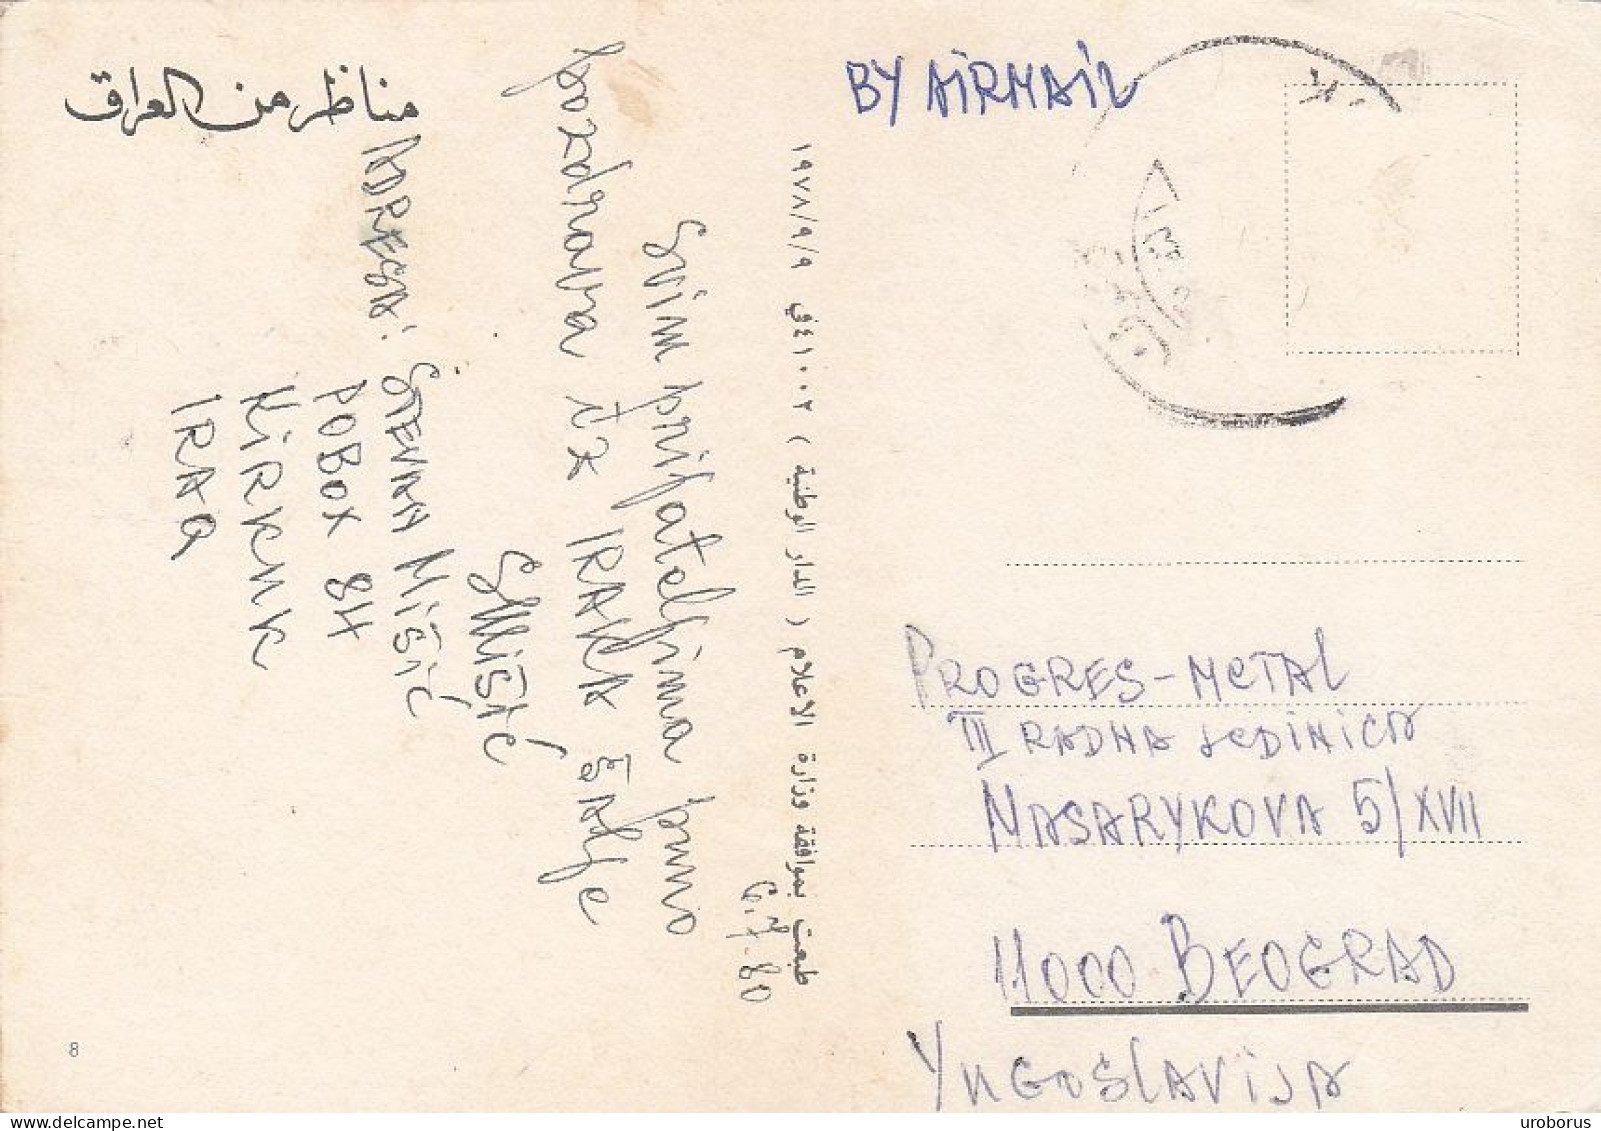 مناظر من العراق
BY AIRMAIL
6.7.80
Svim prijateljima puno
pozdrava iz IRAKA šalje
SMišić
ADRESA: STEVAN MIŠIĆ
POBOX 84
KIRKUK
IRAQ
طبعت بموافقة وزارة الاعلام ( الدار الوطنية ) ٤١٠٠٢ في ١٩٧٨/٩/٩
PROGRES-METAL
III RADNA JEDINICA
MASARYKOVA 5/XVII
11000 BEOGRAD
YUGOSLAVIJA
8
uroborus